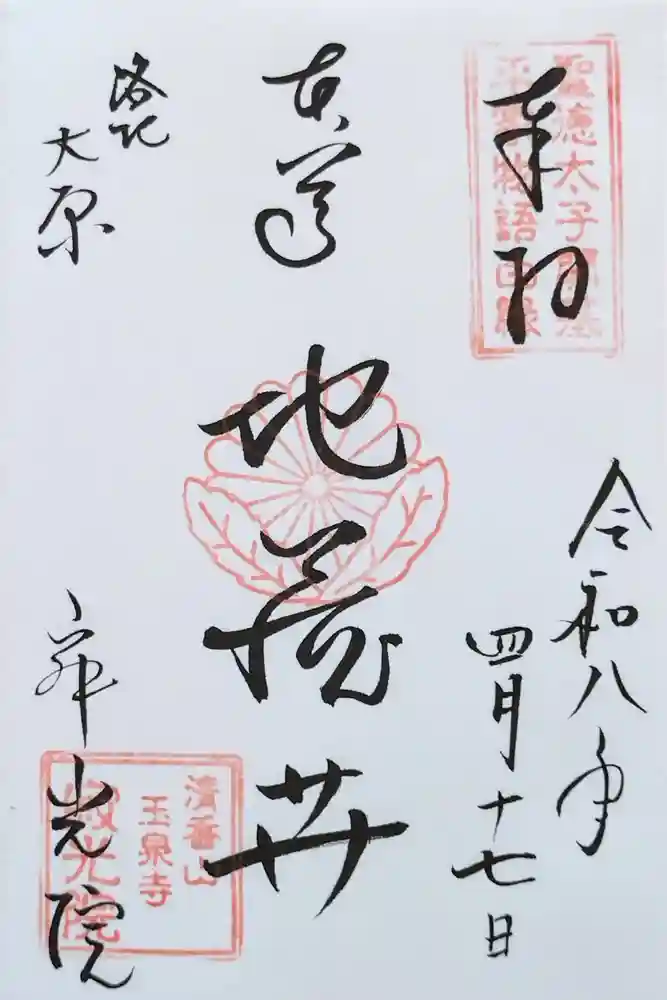 奉拝
聖徳太子開基
平家物語由縁
令和八年
四月十七日
本尊
地蔵𦬇
洛北
大原
寂光院
清香山
玉泉寺
寂光院